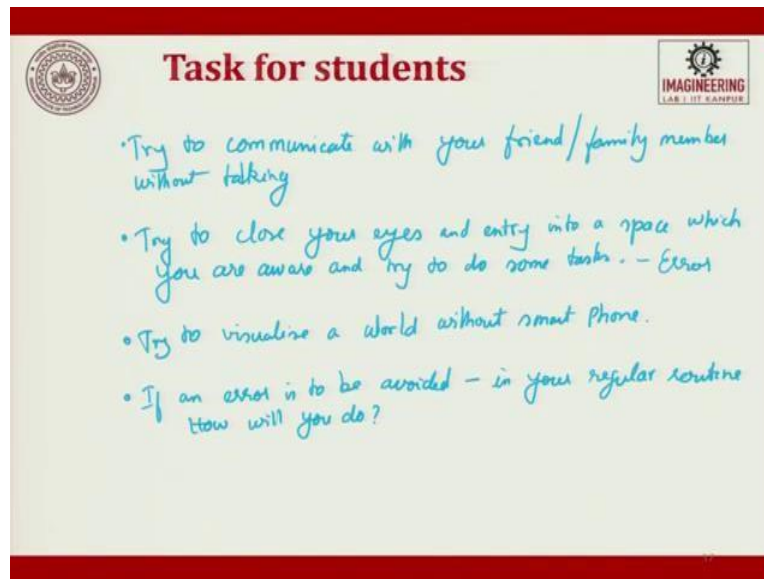 Task for students
IMAGINEERING
LAB | IIT KANPUR
•Try to communicate with your friend/family member
without talking
•Try to close your eyes and entry into a space which
you are aware and try to do some tasks. – Error
•Try to visualise a world without smart Phone.
•If an error is to be avoided – in your regular routine
How will you do?
17